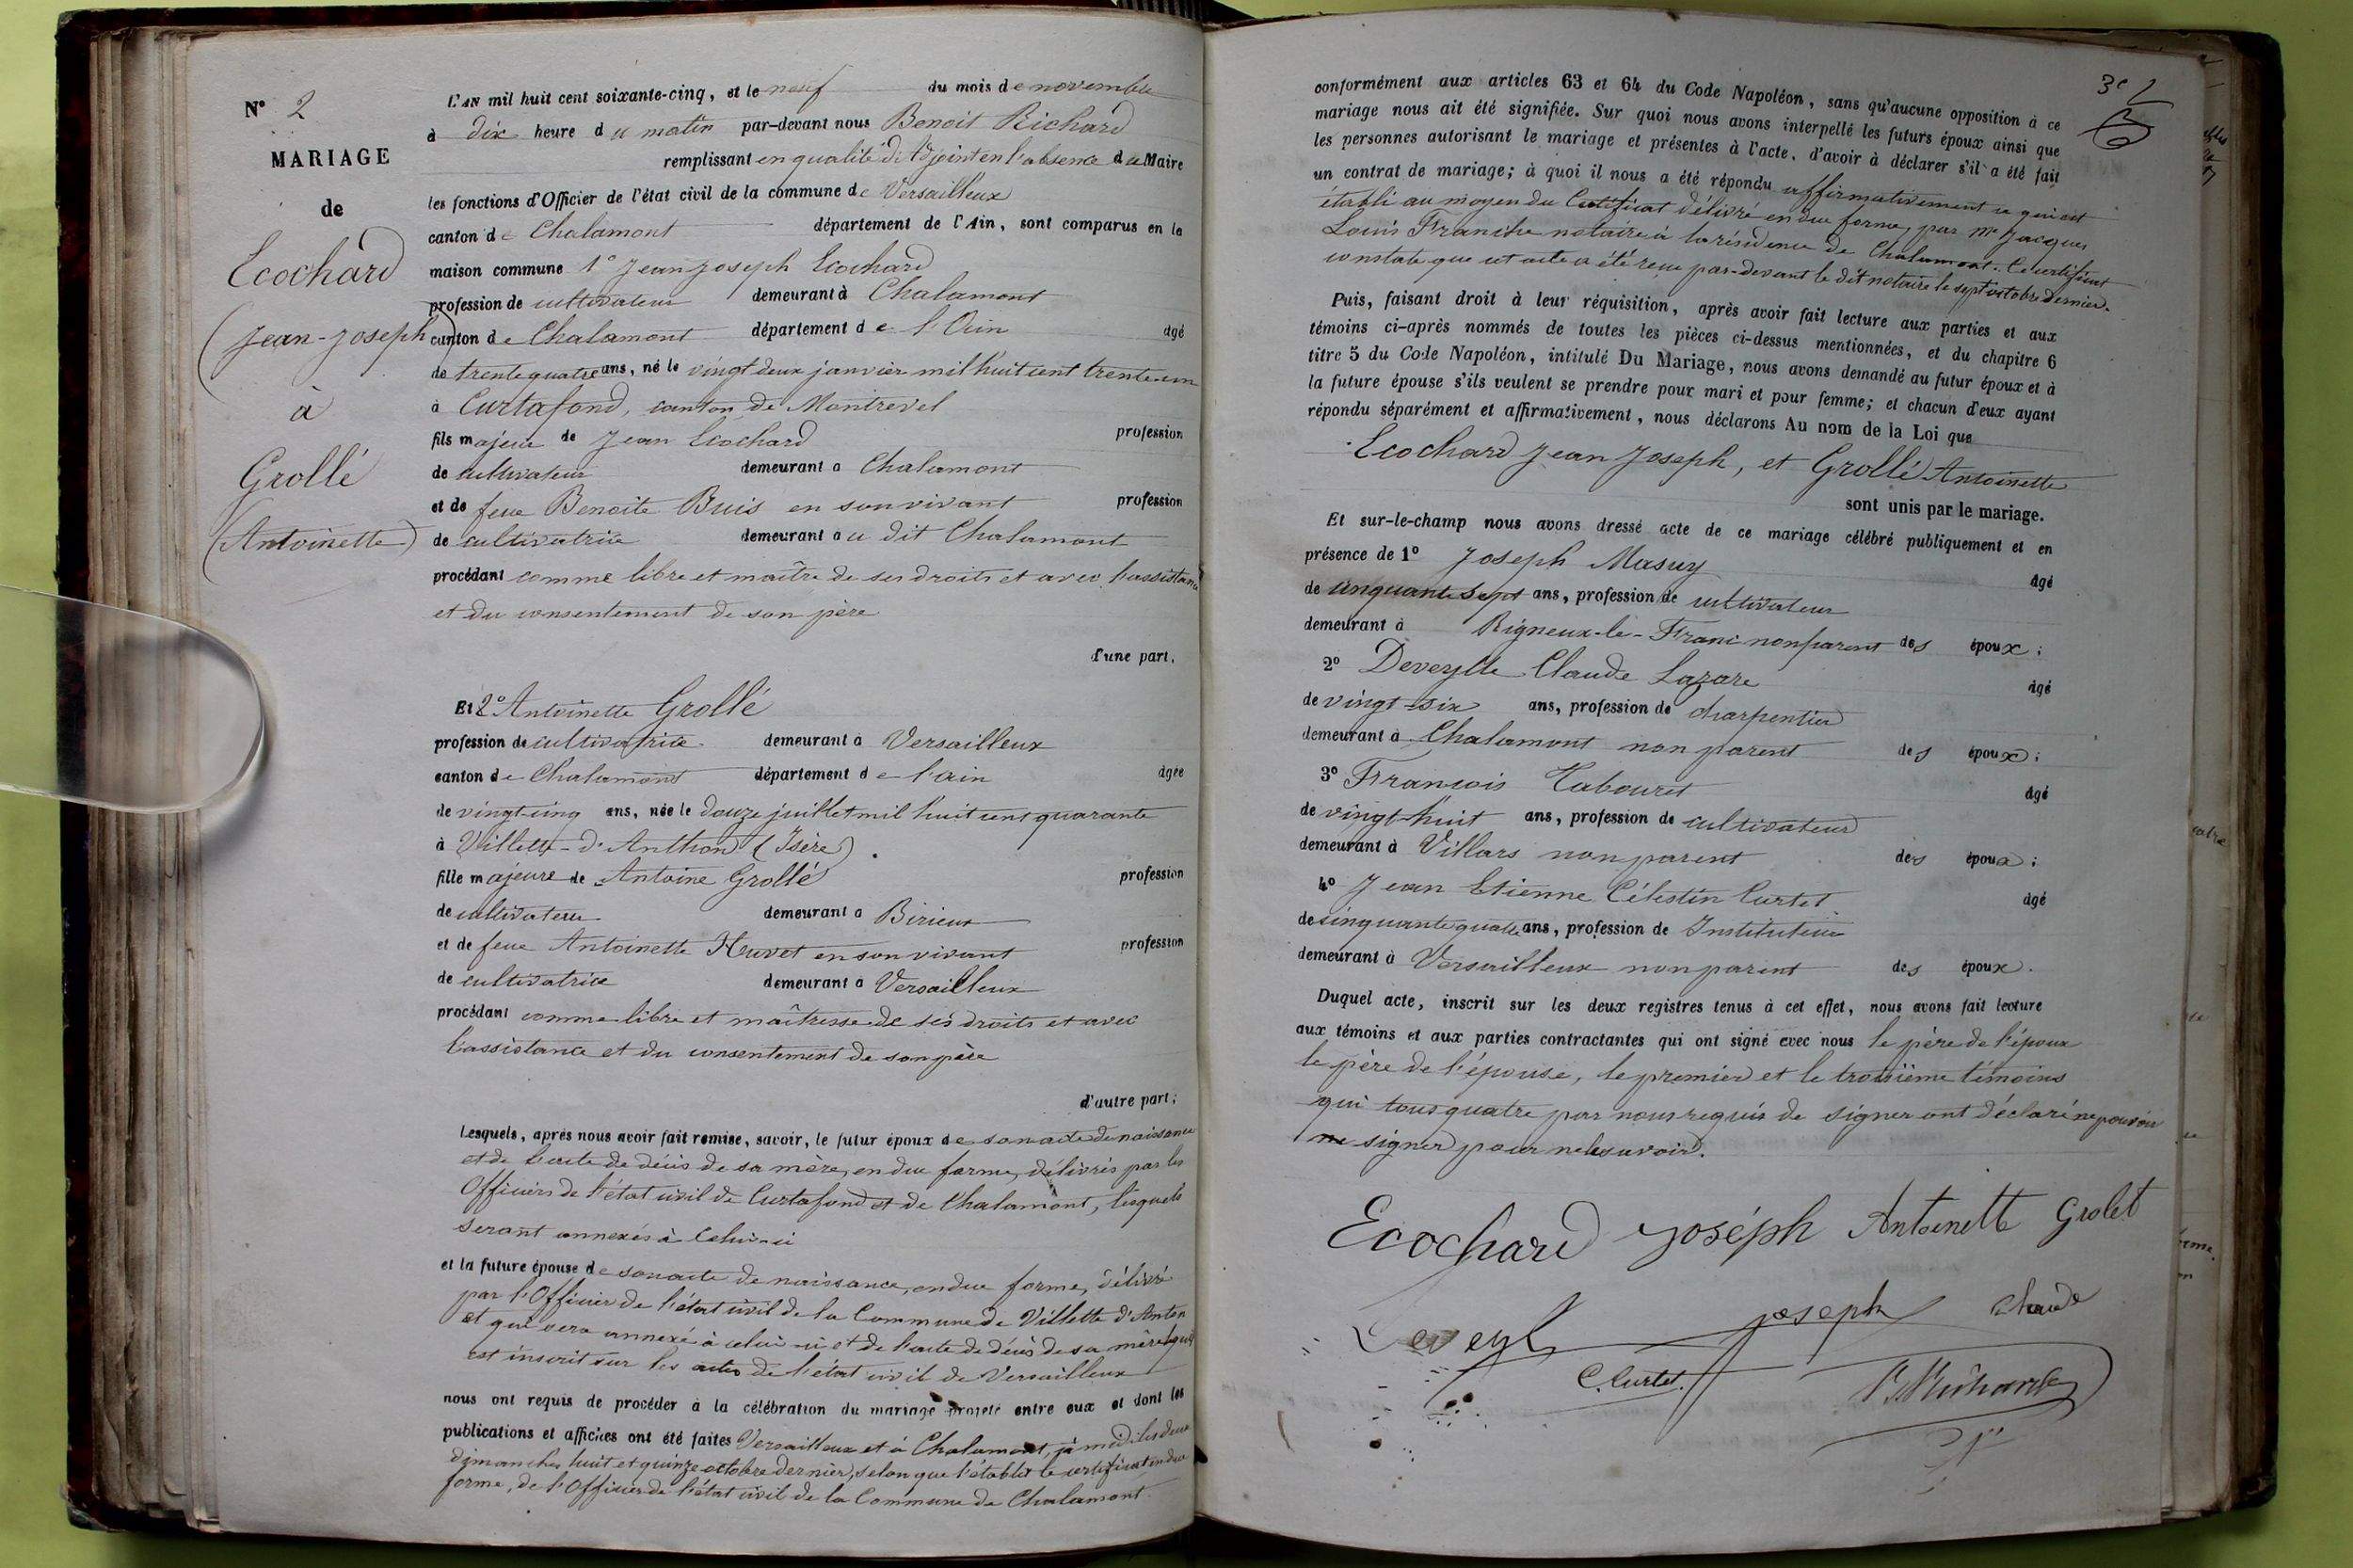 N° 2
MARIAGE
de
Ecochard
(Jean-Joseph)
à
Grollé
(Antoinette)
L'AN mil huit cent soixante-cinq, et le neuf du mois de novembre
à dix heure du matin par-devant nous Benoit Richard
remplissant en qualité d'Adjoint en l'absence du Maire
les fonctions d'Officier de l'état civil de la commune de Versailleux
canton de Chalamont département de l'Ain, sont comparus en la
maison commune 1° Jean Joseph Ecochard
profession de cultivateur demeurant à Chalamont
canton de Chalamont département de l'Ain âgé
de trente quatre ans, né le vingt deux janvier mil huit cent trente un
à Curtafond, canton de Montrevel
fils majeur de Jean Ecochard profession
de cultivateur demeurant à Chalamont
et de feue Benoite Buis en son vivant profession
de cultivatrice demeurant au dit Chalamont
procédant comme libre et maître de ses droits et avec l'assistance
et du consentement de son père
d'une part,
Et 2° Antoinette Grollé
profession de cultivatrice demeurant à Versailleux
canton de Chalamont département de l'ain âgée
de vingt-cinq ans, née le douze juillet mil huit cent quarante
à Villette-d'Anthon (Isère).
fille majeure de Antoine Grollé profession
de cultivateur demeurant à Birieux
et de feue Antoinette Huvet en son vivant profession
de cultivatrice demeurant à Versailleux
procédant comme libre et maîtresse de ses droits et avec
l'assistance et du consentement de son père
d'autre part;
Lesquels, après nous avoir fait remise, savoir, le futur époux de son acte de naissance
et de l'acte de décès de sa mère, en due forme, délivrés par les
Officiers de l'état civil de Curtafond et de Chalamont, lesquels
seront annexés à Celui-ci
et la future épouse de son acte de naissance, en due forme, délivré
par l'Officier de l'état civil de la Commune de Villette d'Anton
et qui sera annexé à celui-ci et de l'acte de décès de sa mère qui
est inscrit sur les actes de l'état civil de Versailleux
nous ont requis de procéder à la célébration du mariage projeté entre eux et dont les
publications et affiches ont été faites Versailleux et à Chalamont, à midi les deux
dimanches huit et quinze octobre dernier, selon que l'établit le certificat en due
forme, de l'Officier de l'état civil de la Commune de Chalamont
conformément aux articles 63 et 64 du Code Napoléon, sans qu'aucune opposition à ce
mariage nous ait été signifiée. Sur quoi nous avons interpellé les futurs époux ainsi que
les personnes autorisant le mariage et présentes à l'acte, d'avoir à déclarer s'il a été fait
un contrat de mariage; à quoi il nous a été répondu affirmativement ce qui est
établi au moyen du Certificat délivré en due forme, par Me Jacques
Louis Franche notaire à la résidence de Chalamont. Ce certificat
constate que cet acte a été reçu par-devant le dit notaire le sept octobre dernier.
Puis, faisant droit à leur réquisition, après avoir fait lecture aux parties et aux
témoins ci-après nommés de toutes les pièces ci-dessus mentionnées, et du chapitre 6
titre 5 du Code Napoléon, intitulé Du Mariage, nous avons demandé au futur époux et à
la future épouse s'ils veulent se prendre pour mari et pour femme; et chacun d'eux ayant
répondu séparément et affirmativement, nous déclarons Au nom de la Loi que
Ecochard Jean Joseph, et Grollé Antoinette
sont unis par le mariage.
Et sur-le-champ nous avons dressé acte de ce mariage célébré publiquement et en
présence de 1° Joseph Masuy âgé
de cinquante sept ans, profession de cultivateur
demeurant à Rigneux-le-Franc non parent des époux;
2° Deveylle Claude Lazare âgé
de vingt-six ans, profession de charpentier
demeurant à Chalamont non parent des époux;
3° François Tabouret âgé
de vingt-huit ans, profession de cultivateur
demeurant à Villars non parent des époux;
4° Jean Etienne Célestin Curtet âgé
de cinquante quatre ans, profession de Instituteur
demeurant à Versailleux non parent des époux.
Duquel acte, inscrit sur les deux registres tenus à cet effet, nous avons fait lecture
aux témoins et aux parties contractantes qui ont signé avec nous le père de l'époux
le père de l'épouse, le premier et le troisième témoins
qui tous quatre par nous requis de signer ont déclaré ne pouvoir
ne signer pour ne le savoir.
Ecochard Joséph Antoinette Grolet
Deveyl joseph Claude
C. Curtet. B Richard